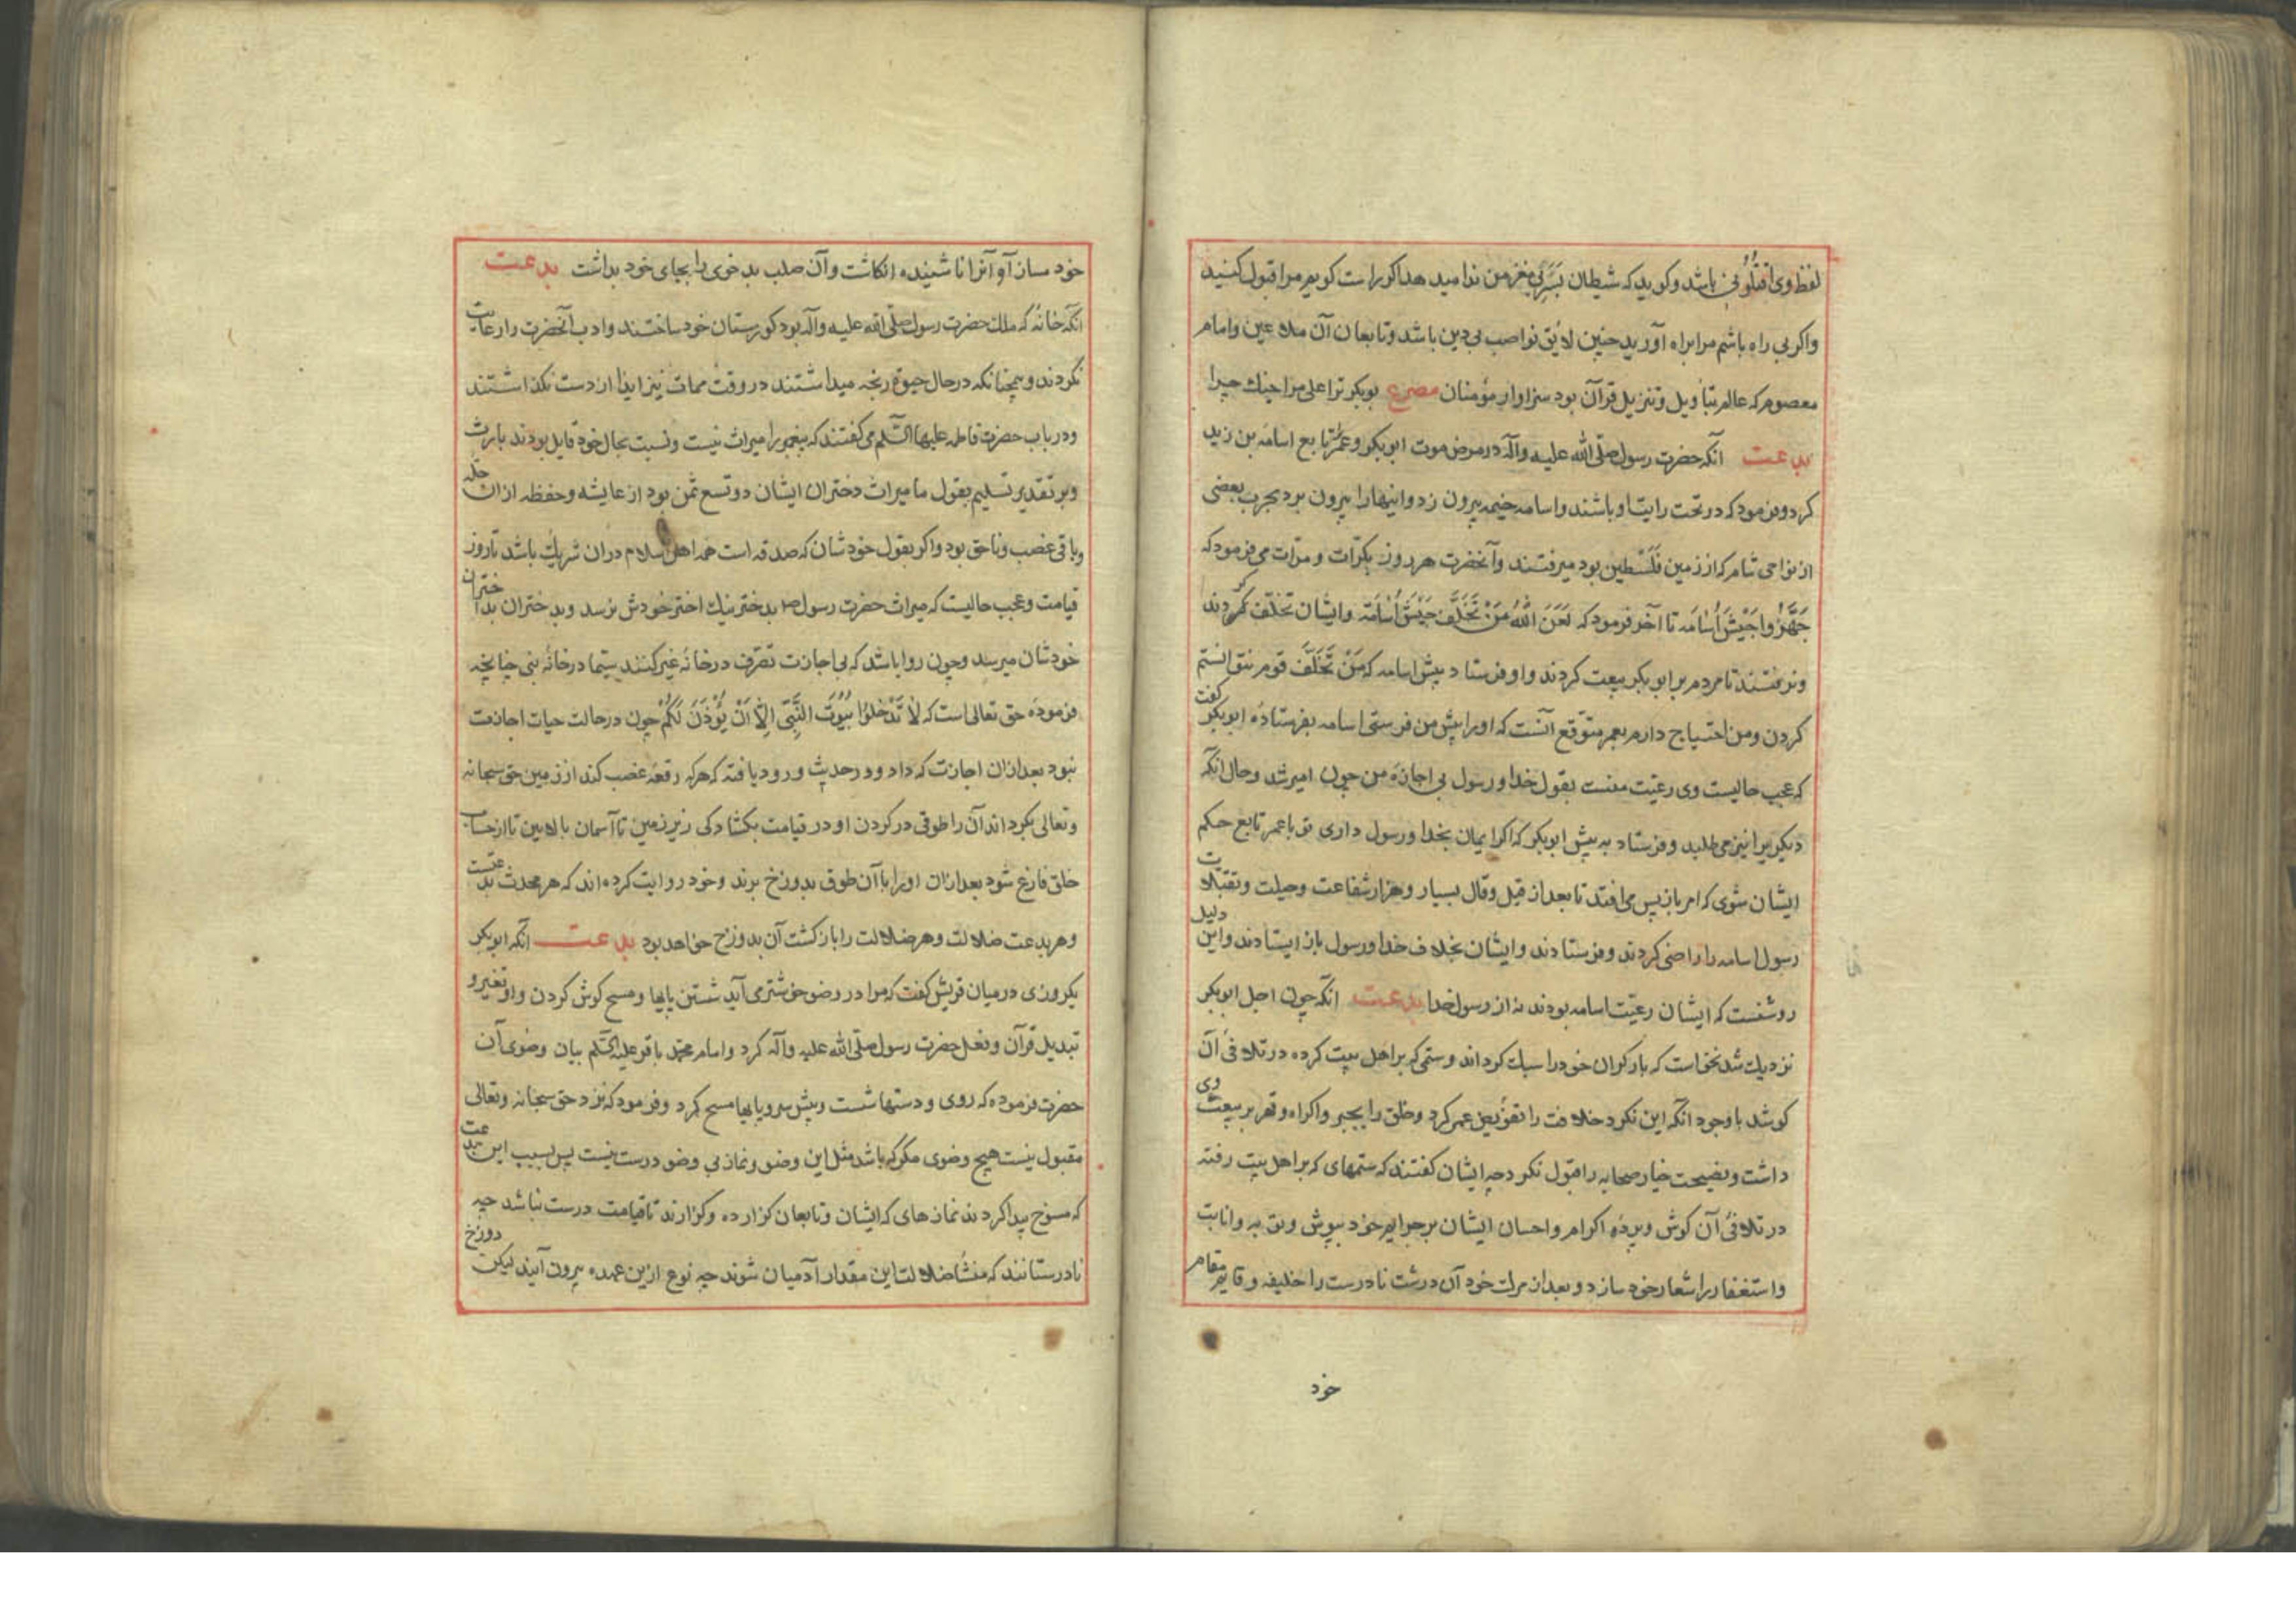 لفظ وی اقیلونی باشد و کوید که شیطان بسر من ندا مید هد اکو راست کویم مرا قبول کنید
واکر بی راه باشم مرا براه آورید چنین لایق نواصب بی دین باشد و تابعان آن ملاعین وامام
معصوم که عالم بتأویل و تنزیل قرآن بود سزاوار مؤمنان مصرع بوبکر ترا علی مرا جنك چرا
بدعت آنکه حضرت رسول صلی الله علیه وآله در مرض موت ابوبکر وعمر را تابع اسامه بن زید
کرد و فرمود که در تحت رایت او باشند واسامه خیمه بیرون زد و اینها را بیرون برد بحرب بعضی
از نواحی شام که از زمین فلسطین بود میرفتند وآنحضرت هر روز بکرّات و مرّات می فرمود که
جَهِّزُوا جَیْشَ اُسٰامَه تا آخر فرمود که لَعَنَ اللهُ مَنْ تَخَلَّفَ جَیْشَ اُسٰامَة وایشان تخلّف کردند
و نرفتند تا مردم بر ابوبکر بیعت کردند واو فرستاد پیش اسامه که مَنْ تَخَلَّفَ قوم نتوانستم
کردن و من احتیاج دارم بعمر متوقع آنست که اورا پیش من فرستی اسامه بفرستادۀ ابوبکر کفت
که عجب حالیست وی رعیّت منست بقول خدا و رسول بی اجازۀ من چون امیر شد وحال آنکه
دیکریرا نیز می طلبد و فرستاد به پیش ابوبکر که اکر ایمان بخدا ورسول داری تو با عمر تابع حکم
ایشان شوی که امر باز پس می افتد تا بعد از قیل وقال بسیار و هزار شفاعت وحیلت و تقبّلات
رسول اسامه را راضی کردند و فرستادند وایشان بخلاف خدا ورسول باز ایستادند واین دلیل
روشنست که ایشان رعیّت اسامه بودند نه از رسول خدا بدعت انکه چون اجل ابوبکر
نزدیك شد نخواست که بار کران خود را سبك کرداند وستمی که بر اهل بیت کرده در تلافی آن
کوشد با وجود آنکه این نکرد خلافت را تفویض عمر کرد وخلق را بجبر واکراه وقهر بر بیعت وی
داشت و نصیحت خیار صحابه را قبول نکرد چه ایشان کفتند که ستمهای که بر اهل بیت رفته
در تلافی آن کوش و پردۀ اکرام واحسان ایشان بر جرایم خود بپوش و توبه وانابت
واستغفار را شعار خود سازد و بعد از مرك خود آن درشت نادرست را خلیفه و قایم مقام
خود
خود مساز آو آنرا ناشنیده انکاشت وآن صلب بد خوی را بجای خود بداشت بدعت
انکه خانه که ملك حضرت رسول صلی الله علیه وآله بود کورستان خود ساختند وادب آنحضرت را رعایت
نکردند و همچنانکه در حال حیوة رنجه میداشتند در وقت ممات نیز ایذا از دست نکذاشتند
ودر باب حضرت فاطمه علیها السّلم می کفتند که پیغمبر را میراث نیست و نسبت بحال خود قایل بودند بارث
وبر تقدیر تسلیم بقول ما میراث دختران ایشان دو تسع ثمن بود از عایشه وحفظه از ان جمله
وباقی غصب وناحق بود واکر بقول خودشان که صدقه است همه اهل اسلام دران شریك باشد تا روز
قیامت وعجب حالیست که میراث حضرت رسول ص بدختر نیك اختر خودش نرسد و بدختران بد اختران
خودشان میرسد وچون روا باشد که بی اجازت تصرّف در خانۀ غیر کنند سیّما در خانۀ نبی چنانچه
فرمودۀ حق تعالی است که لٰا تَدْخُلُوا بُیُوتَ النَّبِیِّ اِلّٰا اَنْ یُؤْذَنَ لَکُمْ چون در حالت حیات اجازت
نبود بعد ازان اجازت که داد ودر حدیث ورود یافته که هر که رقعه غصب کند از زمین حق سبحانه
وتعالی بکرداند آن را طوقی در کردن او در قیامت بکشادکی زیر زمین تا آسمان بالا بین تا از حساب
خلق فارغ شود بعد ازان اورا با آن طوق بدوزخ برند وخود روایت کرده اند که هر محدث بدعتست
وهر بدعت ضلالت وهر ضلالت را باز کشت آن بدوزخ خواهد بود بدعت آنکه ابوبکر
یکروزی در میان قریش کفت که مرا در وضو خوشتر می آید شستن پایها و مسح کوش کردن واو تغییر و
تبدیل قرآن وفعل حضرت رسول صلی الله علیه وآله کرد وامام محمّد باقر علیه السّلم بیان وضوی آن
حضرت فرموده که روی و دستها شست و پیش سر و پایها مسح کرد وفرمود که نزد حق سبحانه وتعالی
مقبول نیست هیچ وضوی مکر که باشد مثل این وضو ونماز بی وضو درست نیست پس بسبب این بدعت
که منسوخ پیدا کردند نمازهای که ایشان وتابعان کزارده وکزارند تا قیامت درست نباشد چه
نادرستانند که منشأ ضلالت این مقدار آدمیان شوند چه نوع ازین عهده بیرون آیند لیکن دوزخ